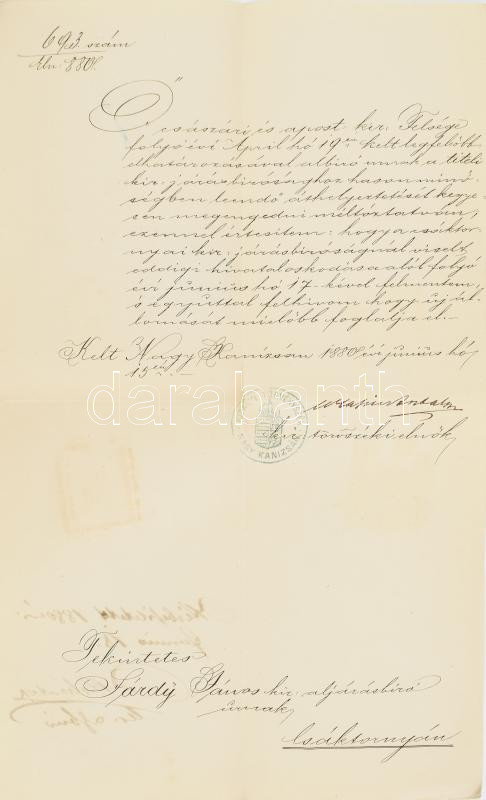 693. szám
Eln: 880.
Ő császári és apost. kir: Felsége
folyó évi April hó 19én kelt legfelsőbb
elhatározásával albiró urnak a titeli
kir: járásbirósághoz hason minő-
ségben leendő áthelyeztetését kegye-
sen megengedni méltóztatván,
ezennel értesitem: hogy a csáktor-
nyai kir: járásbiróságnál viselt
eddigi hivataloskodása alól folyó
évi junius hó 17-kével felmentem,
s egyuttal felhivom hogy uj ál-
lomását mielőbb foglalja el.-
Kelt Nagy Kanizsán 1880 évi junius hó
15én
kir: törvszéki elnök
NAGY KANIZSA
darabanth
Tekintetes
Sárdy János kir: aljárásbiró
urnak
Csáktornyán